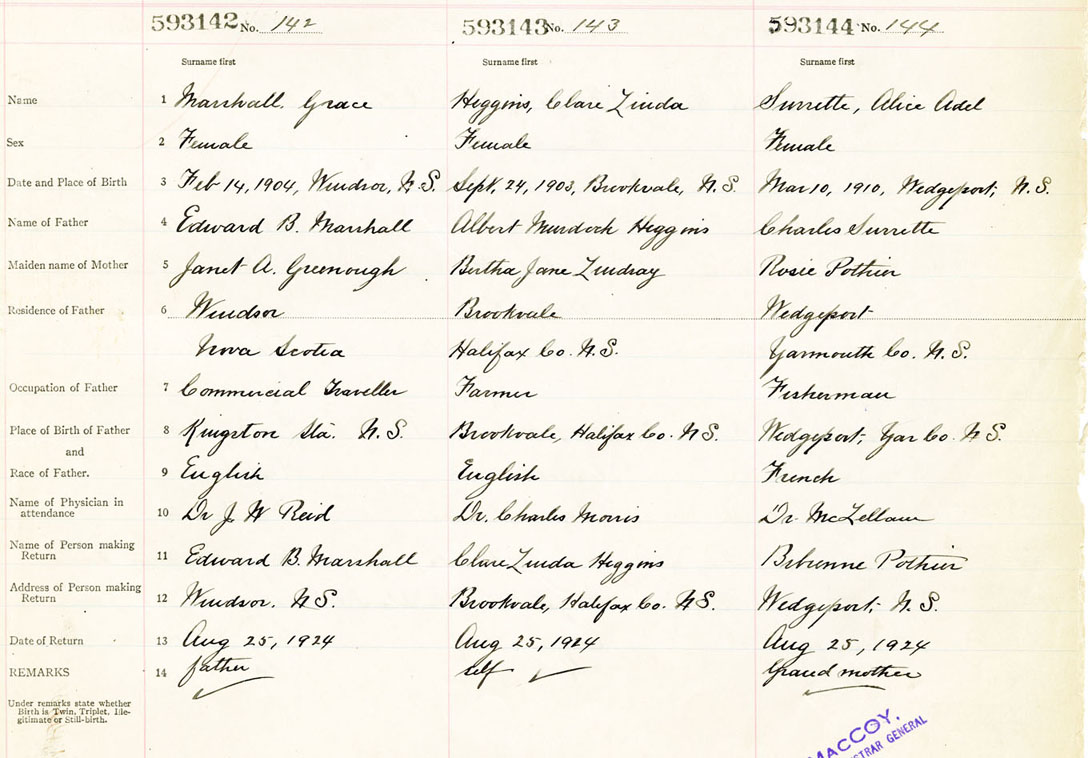 593142 No. 142 593143 No. 143 593144 No. 144
Surname first Surname first Surname first
Name 1 Marshall, Grace Higgins, Clare Linda Surrette, Alice Adel
Sex 2 Female Female Female
Date and Place of Birth 3 Feb 14, 1904, Windsor, N.S. Sept, 24, 1903, Brookvale, N.S. Mar 10, 1910, Wedgeport, N.S.
Name of Father 4 Edward B. Marshall Albert Murdock Higgins Charles Surrette
Maiden name of Mother 5 Janet A. Greenough Bertha Jane Lindsay Rosie Pothier
Residence of Father 6 Windsor Brookvale Wedgeport
Nova Scotia Halifax Co. N.S. Yarmouth Co. N.S.
Occupation of Father 7 Commercial Traveller Farmer Fisherman
Place of Birth of Father 8 Kingston Sta. N.S. Brookvale, Halifax Co. N.S. Wedgeport, Yar Co. N.S.
and
Race of Father. 9 English English French
Name of Physician in
attendance 10 Dr J. W Reid Dr. Charles Morris Dr. McLellan
Name of Person making
Return 11 Edward B. Marshall Clare Linda Higgins Pothier
Address of Person making
Return 12 Windsor. N.S. Brookvale, Halifax Co. N.S. Wedgeport, N.S.
Date of Return 13 Aug 25, 1924 Aug 25, 1924 Aug 25, 1924
REMARKS 14 father Self Grand mother
Under remarks state whether
Birth is Twin, Triplet, Ille-
gitimate or Still-birth.
MACCOY,
STRAR GENERAL